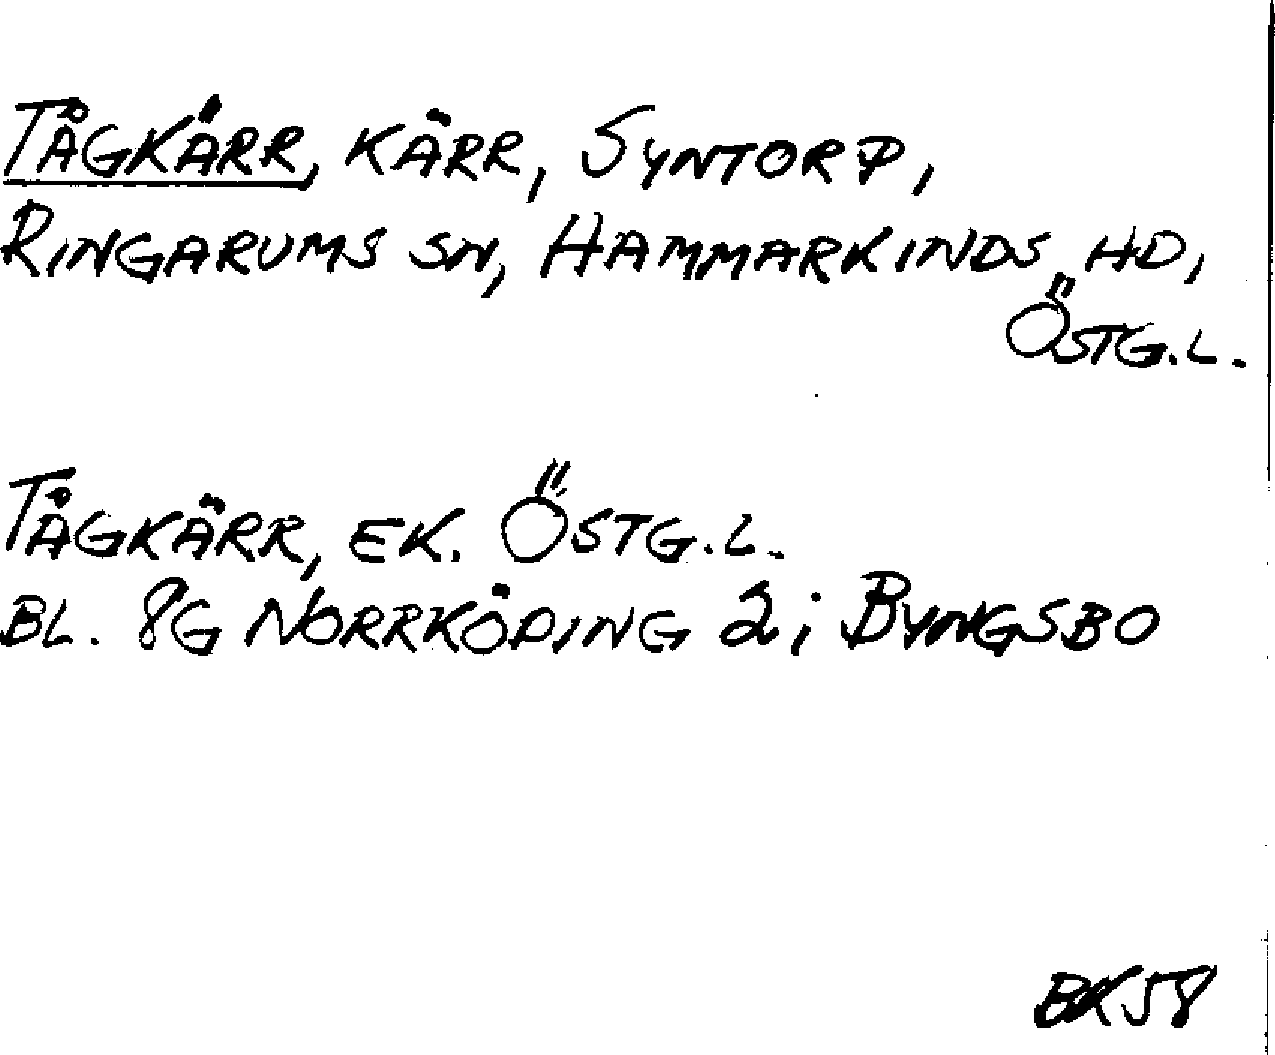 TÅGKÄRR, KÄRR, SYNTORP,
RINGARUMS SN, HAMMARKINDS HD,
ÖSTG.L.
TÅGKÄRR, EK. ÖSTG.L.
BL. 8G NORRKÖPING 2i BYNGSBO
BK58